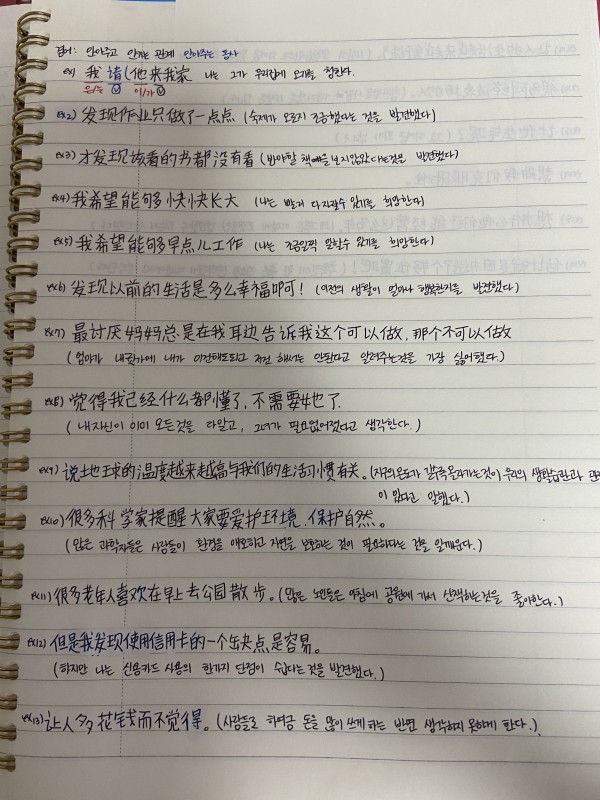 안아주고 안기는 관계 안아주는 동사
ex1) 我请(他来我家 나는 그가 우리집에 오기를 청한다.
은/는 이/가
ex2) 发现作业只做了一点点 (숙제가 오르지 조금했다는 것을 발견했다)
ex3) 才发现该看的书都没有看 (봐야할 책에을 보지않았다는것을 발견했다)
ex4) 我希望能够快快长大 (나는 빨리 다 자랄수 있기를 희망한다)
ex5) 我希望能够早点儿工作 (나는 조금일찍 일할수 있기를 희망한다)
ex6) 发现以前的生活是多么幸福啊可! (이전의 생활이 얼마나 행복한지을 발견했다)
ex7) 最讨厌妈妈总是在我耳边告诉我这个可以做, 那个不可以做
(엄마가 내 귓가에 내가 이건해도되고 저건 해서는 안된다고 알려주는것을 가장 싫어했다.)
ex8) 觉得我已经什么都懂了, 不需要她了.
(내 자신이 이미 모든것을 다알고, 그녀가 필요없어졌다고 생각한다.)
ex9) 说地球的温度越来越高与我们的生活习惯有关。(지구의 온도가 갈수록 올라가는것이 우리의 생활습관과 관련
이 있다고 말했다.)
ex10) 很多科学家提醒大家要爱护环境, 保护自然。
(많은 과학자들은 사람들이 환경을 애호하고 자연을 보호하는 것이 필요하다는 것을 일깨운다.)
ex11) 很多老年人喜欢在早上去公园散步。(많은 노인들은 아침에 공원에 가서 산책하는것을 좋아한다.)
ex12) 但是我发现使用信用卡的一个缺点是容易。
(하지만 나는 신용카드 사용의 한가지 단점이 쉽다는 것을 발견했다.)
ex13) 让人多花钱而不觉得。(사람들로 하여금 돈을 많이 쓰게하는 반면 생각하지 못하게 한다.)